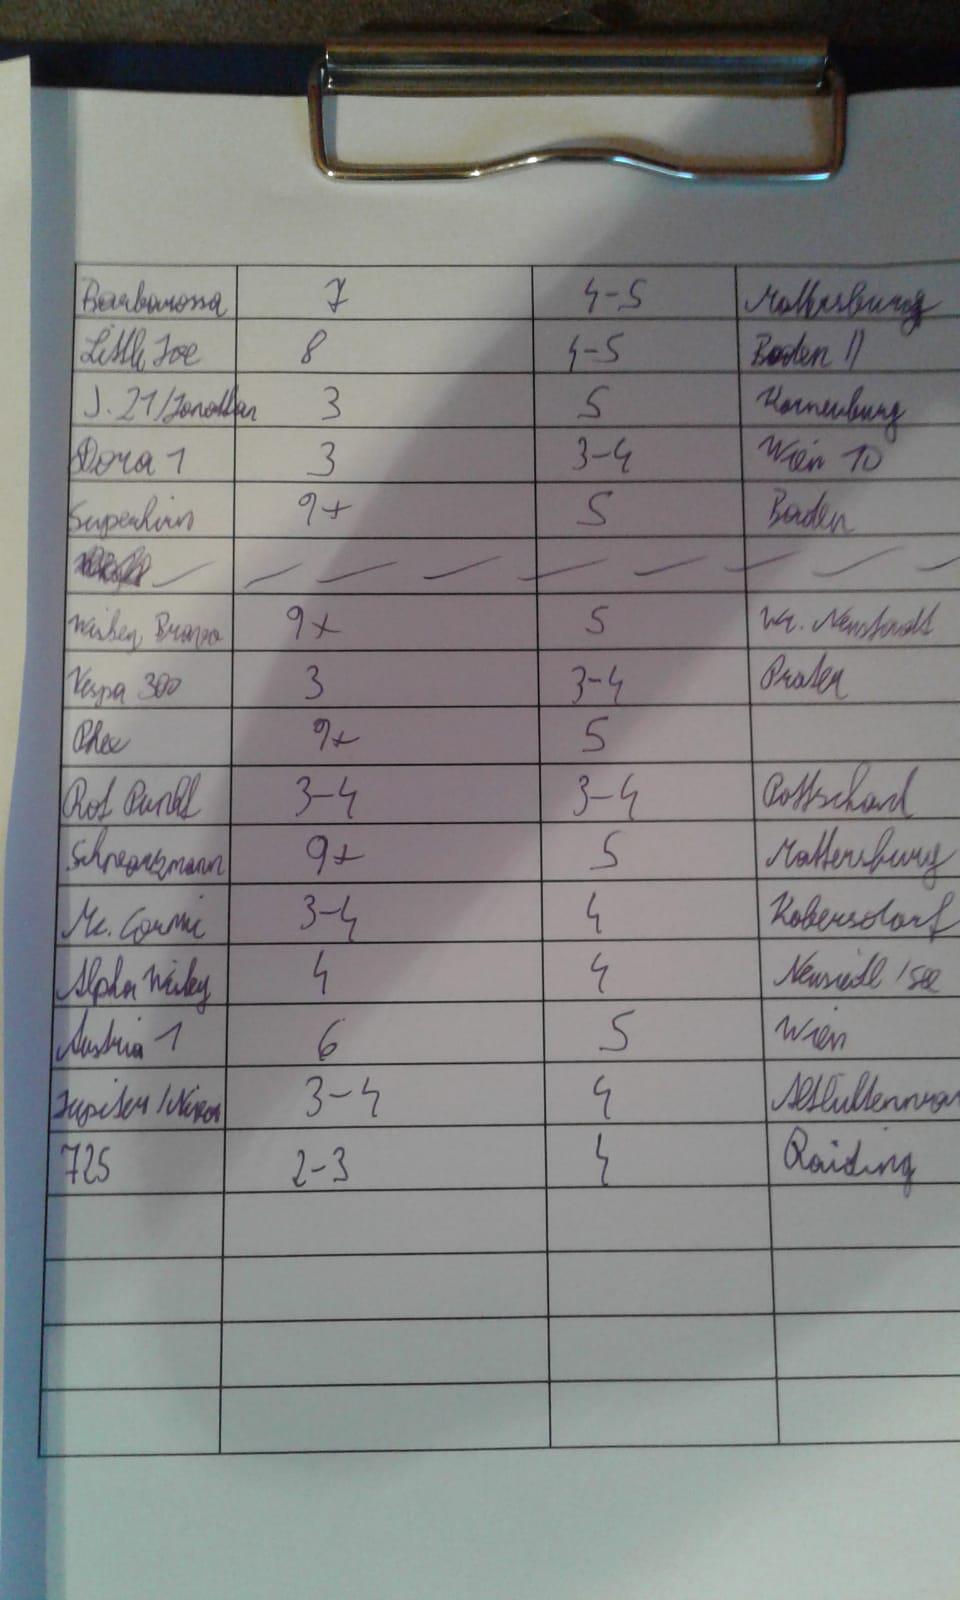 Barbarossa 7 4-5 Mattersburg
Little Joe 8 4-5 Baden II
J. 21/Jonathan 3 5 Korneuburg
Dora 1 3 3-4 Wien 10
Superhirn 9+ 5 Baden
Whiskey Bravo 9+ 5 Wr. Neustadt
Vespa 300 3 3-4 Prater
9+ 5
Rot Punkt 3-4 3-4 Pottschach
Schwarzmann 9+ 5 Mattersburg
Mc. 3-4 4 Kobersdorf
Alpha Wiskey 4 4 Neusiedl/See
Austria 1 6 5 Wien
Jupiter / 3-4 4
725 2-3 4 Raiding